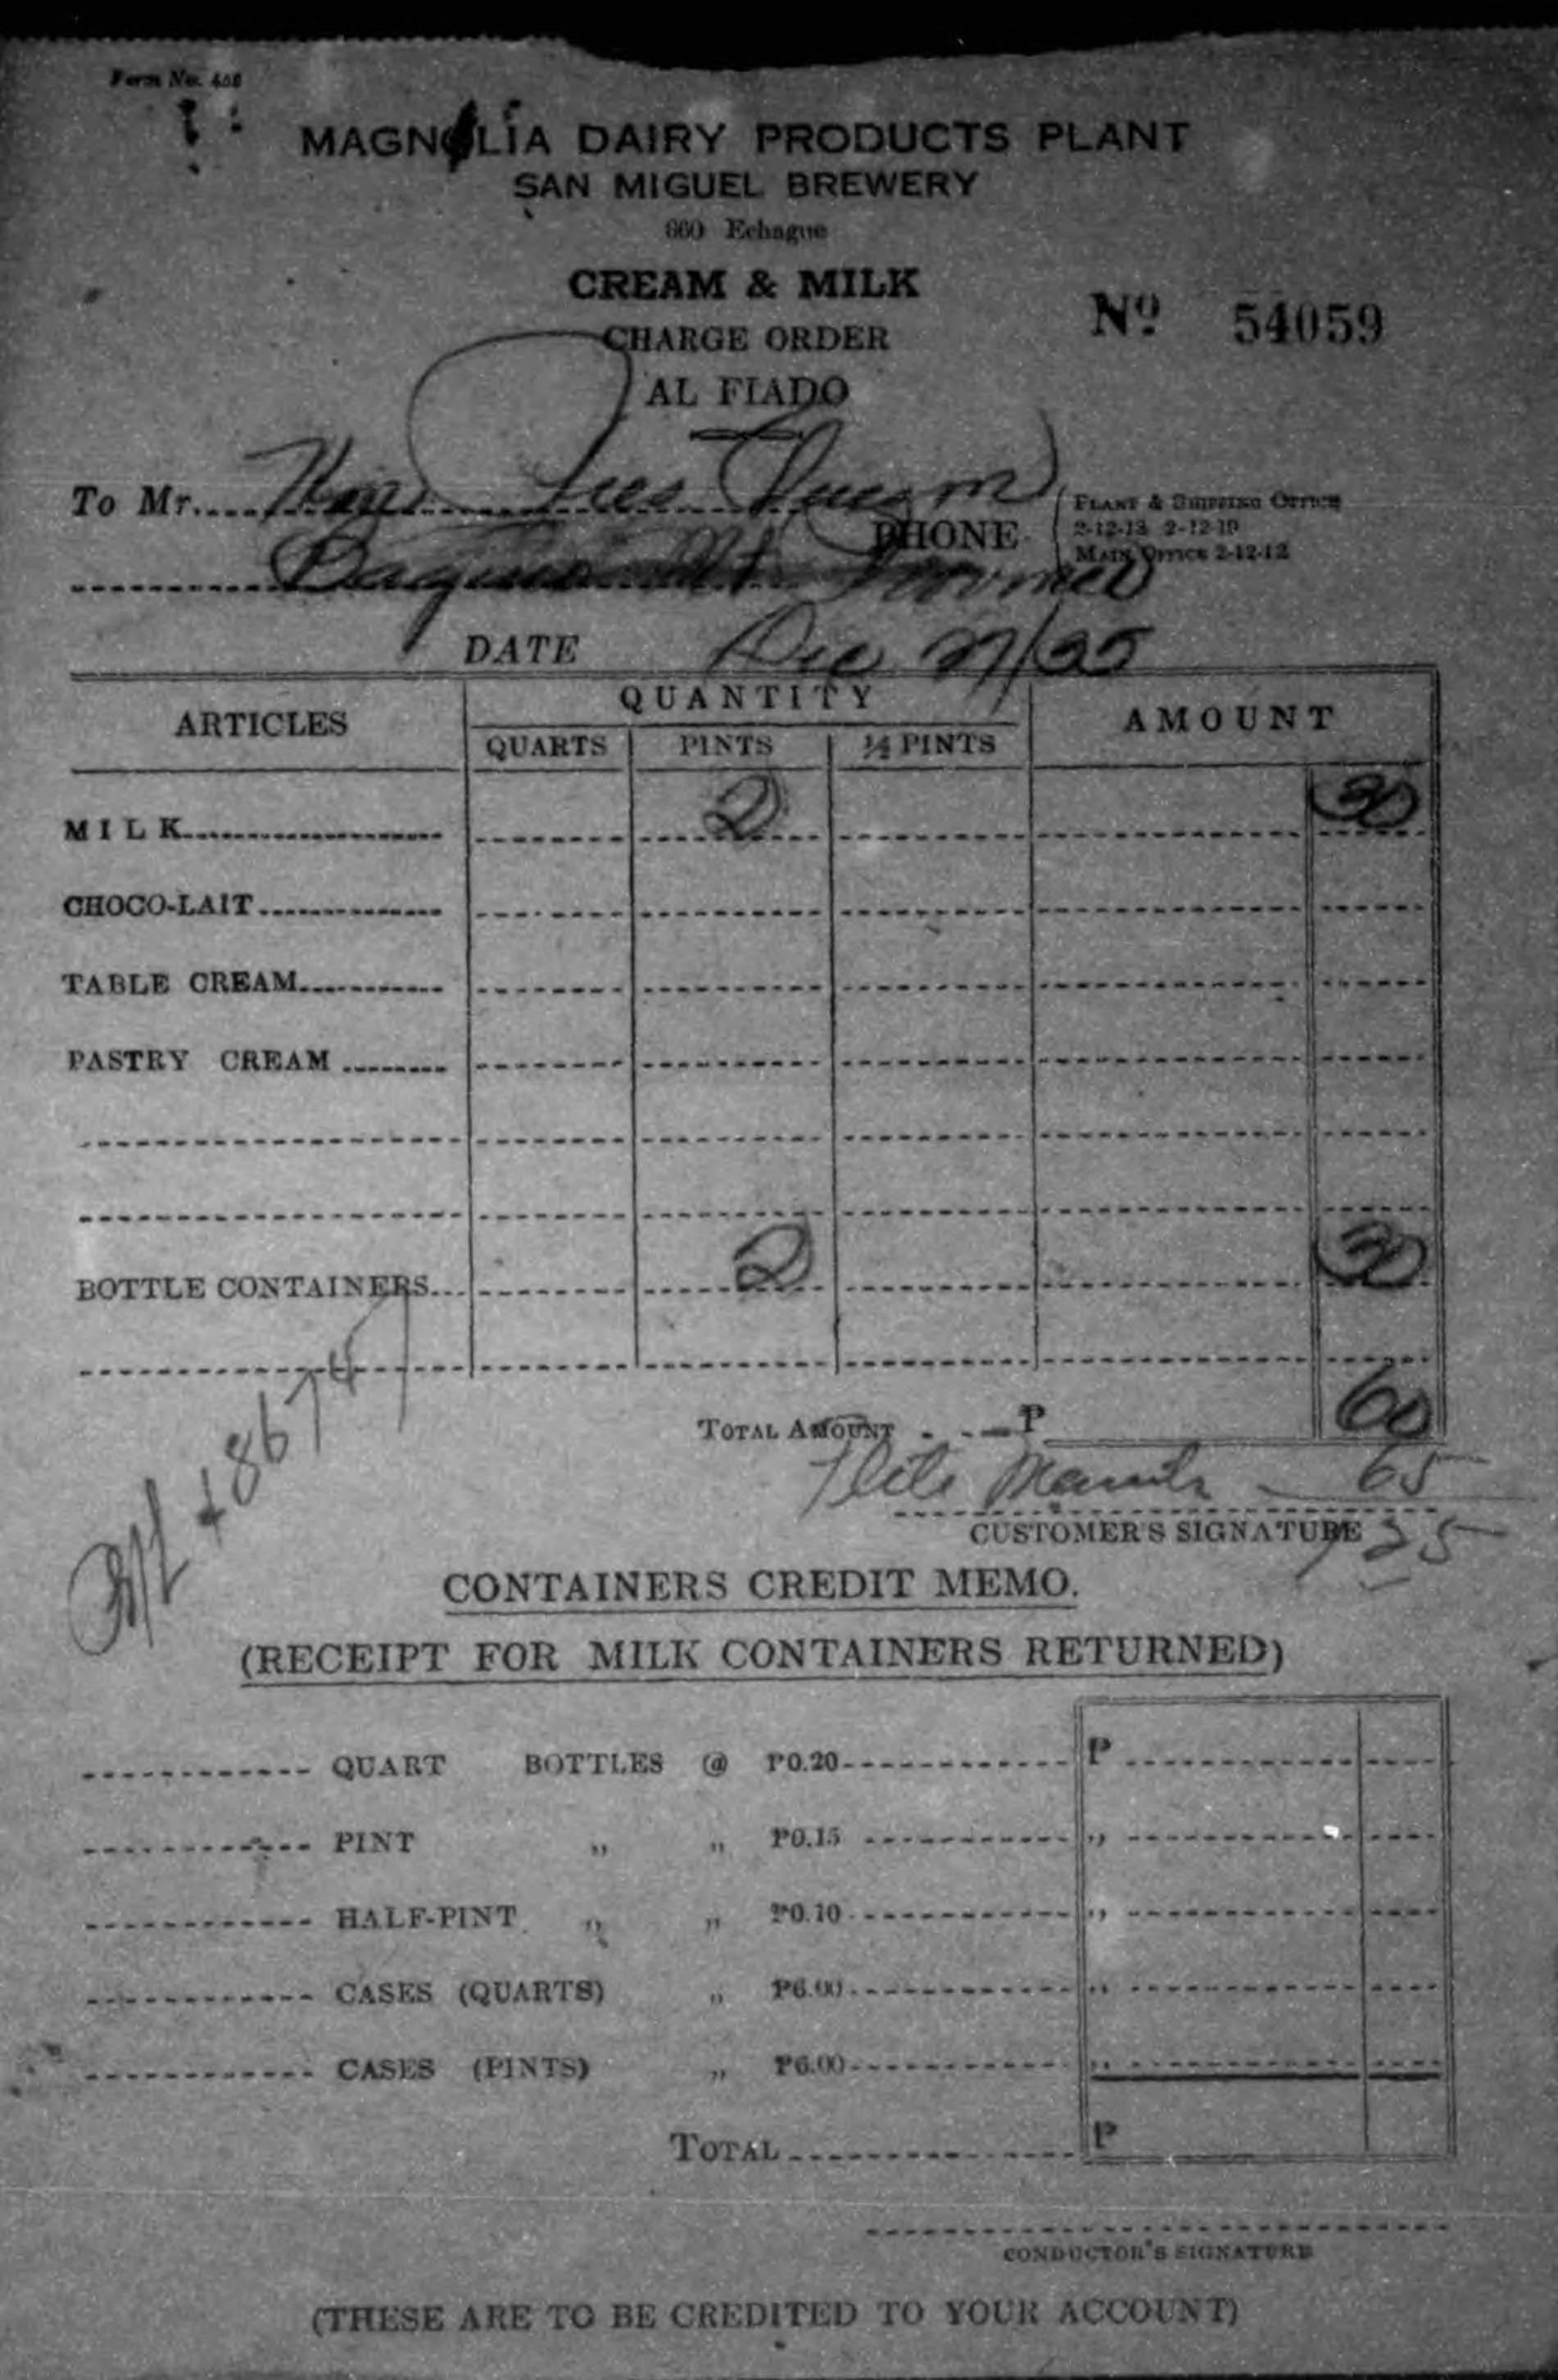 Form No.
MAGNOLIA DAIRY PRODUCTS PLANT
SAN MIGUEL BREWERY
660 Echague
CREAM & MILK
CHARGE ORDER
Nº 54059
AL FIADO
To Mr.
PHONE
PLANT & SHIPPING OFFICE
2-12-13 2-12-19
MAIN OFFICE 2-12-12
Baguio Mt Province
DATE Dec 27/35
ARTICLES QUANTITY AMOUNT
QUARTS PINTS ½ PINTS
MILK 2 30
CHOCO-LAIT
TABLE CREAM
PASTRY CREAM
BOTTLE CONTAINERS 2 30
TOTAL AMOUNT - - - ₱ 60
65
CUSTOMER'S SIGNATURE
CONTAINERS CREDIT MEMO.
(RECEIPT FOR MILK CONTAINERS RETURNED)
QUART BOTTLES @ ₱0.20 ₱
PINT ,, ,, ₱0.15 ,,
HALF-PINT ,, ,, ₱0.10 ,,
CASES (QUARTS) ,, ₱6.00 ,,
CASES (PINTS) ,, ₱6.00 ,,
TOTAL ₱
CONDUCTOR'S SIGNATURE
(THESE ARE TO BE CREDITED TO YOUR ACCOUNT)